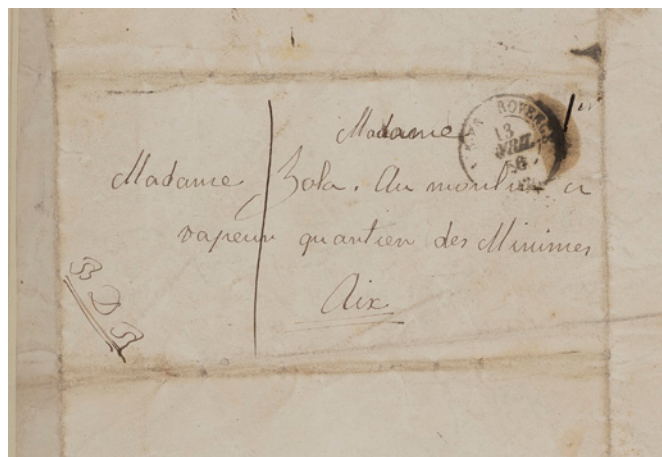 Madame
Madame Zola. Au moulin a
vapeur quartier des Minimes
Aix
BDR
13
AVRIL
56